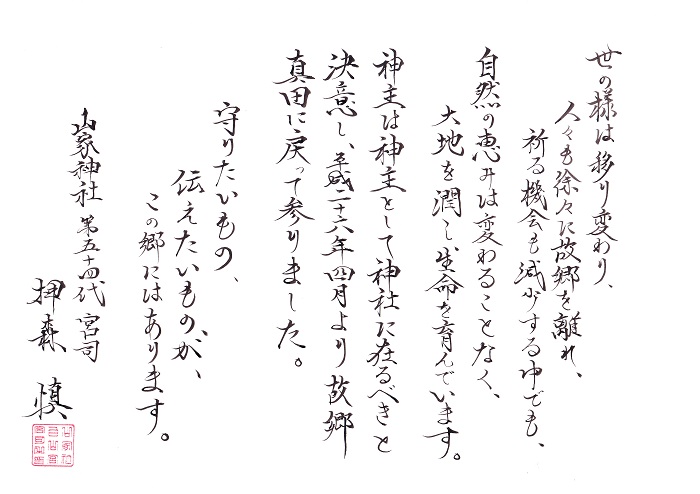 世の様は移り変わり、
人々も徐々に故郷を離れ、
祈る機会も減少する中でも、
自然の恵みは変わることなく、
大地を潤し、生命を育んでいます。
神主は神主として神社に在るべきと
決意し、平成二十六年四月より故郷
真田に戻って参りました。
守りたいもの、
伝えたいものが、
この郷にはあります。
山家神社 第五十四代 宮司
押森 慎